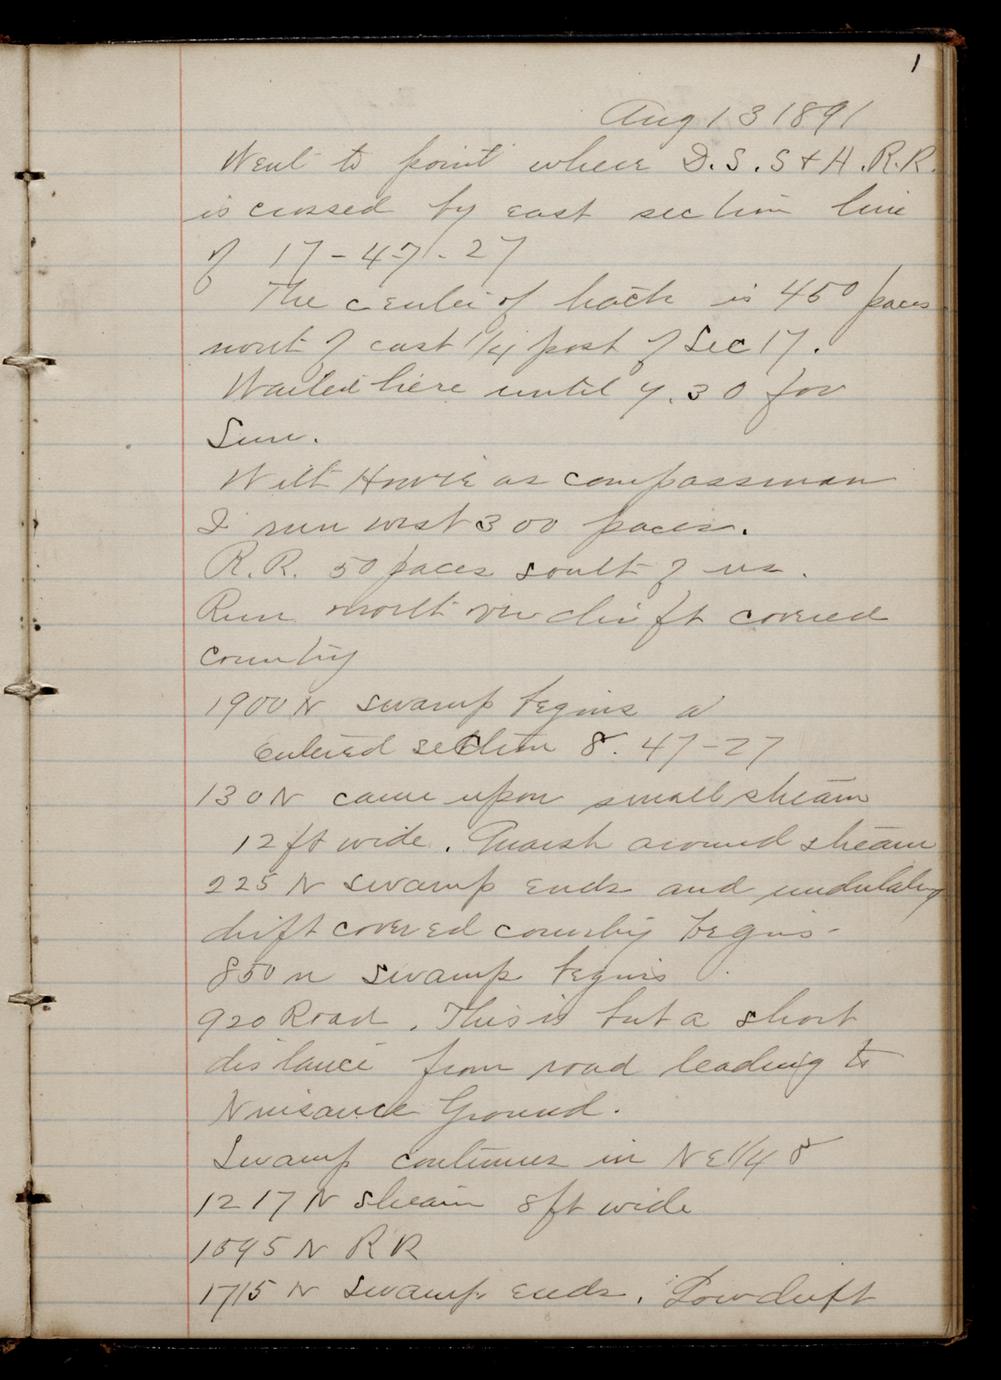 1
Aug 13 1891
Went to point where D.S.S & A.R.R.
is crossed by east section line
of 17-47-27
The center of track is 450 paces
north of east 1/4 post of Sec 17.
Waited here until 9.30 for
Sun.
With Howie as compassman
I run west 300 paces.
R.R. 50 paces south of us.
Run north over drift covered
country
1900 N swamp begins
Entered section 8. 47-27
130 N came upon small stream
12 ft wide. Marsh around stream
225 N swamp ends and undulating
drift covered country begins-
850 n swamp begins
920 Road. This is but a short
distance from road leading to
Nuisance Ground.
Swamp continues in NE1/4 8
1217 N stream 8ft wide
1595 N RR
1715 N swamp ends. Low drift